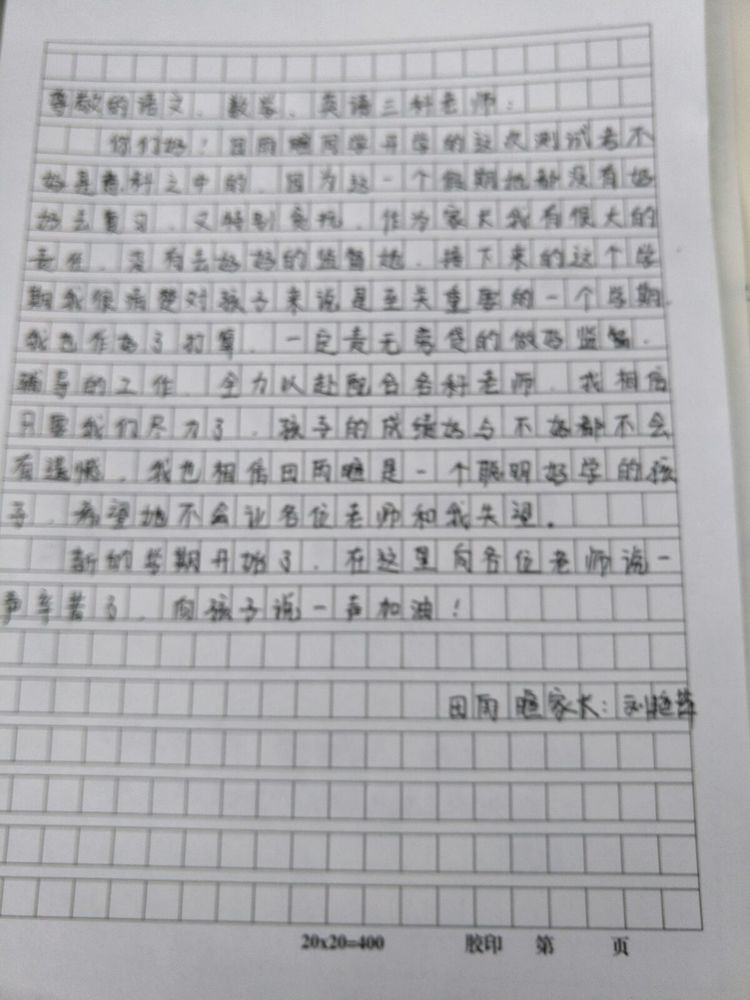 尊敬的语文、数学、英语三科老师:
你们好!田雨瞳同学开学的这次测试考不
好是意料之中的,因为这一个假期她都没有好
好去复习,又特别贪玩,作为家长我有很大的
责任,没有去好好的监督她,接下来的这个学
期我很清楚对孩子来说是至关重要的一个学期,
我也作好了打算,一定责无旁贷的做好监督、
辅导的工作,全力以赴配合各科老师,我相信
只要我们尽力了,孩子的成绩好与不好都不会
有遗憾,我也相信田雨瞳是一个聪明好学的孩
子,希望她不会让各位老师和我失望。
新的学期开始了,在这里向各位老师说一
声辛苦了,向孩子说一声加油!
田雨瞳家长:刘艳萍
20x20=400 胶印 第 页